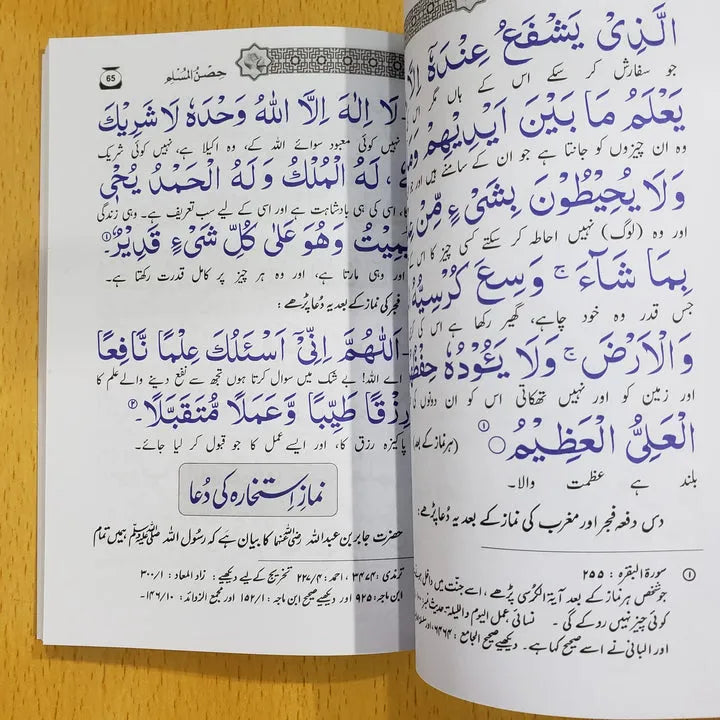 الَّذِیْ یَشْفَعُ عِنْدَهٗ اِلَّا
جو سفارش کر سکے اس کے ہاں مگر اس
یَعْلَمُ مَا بَیْنَ اَیْدِیْهِمْ
وہ ان چیزوں کو جانتا ہے جو ان کے سامنے ہیں اور
وَلَا یُحِیْطُوْنَ بِشَیْءٍ مِّنْ
اور وہ (لوگ) نہیں احاطہ کر سکتے کسی چیز کا اس کے
بِمَا شَآءَ ۚ وَسِعَ كُرْسِیُّهُ
جس قدر وہ خود چاہے، گھیر رکھا ہے اس کی
وَالْاَرْضَ ۚ وَلَا یَـُٔوْدُهٗ
اور زمین کو اور نہیں تھکاتی اس کو ان دونوں کی
الْعَلِیُّ الْعَظِیْمُ ○ ① (ہر نماز کے بعد)
بلند ہے عظمت والا۔
دس دفعہ فجر اور مغرب کی نماز کے بعد یہ دُعا پڑھے:
① سورۃ البقرہ : ۲۵۵
جو شخص ہر نماز کے بعد آیۃ الکرسی پڑھے، اسے جنت میں داخلے سے
کوئی چیز نہیں روکے گی۔ نسائی عمل الیوم واللیلۃ حدیث نمبر
اور البانی نے اسے صحیح کہا ہے۔ دیکھیے صحیح الجامع : ۶۴۶۴، اور
حِصنُ المُسْلِم 65
لَا اِلٰهَ اِلَّا اللهُ وَحْدَهٗ لَا شَرِیْكَ
نہیں کوئی معبود سوائے اللہ کے، وہ اکیلا ہے، نہیں کوئی شریک
لَهُ الْمُلْكُ وَلَهُ الْحَمْدُ یُحْیٖ
اسی کی ہی بادشاہت ہے اور اسی کے لیے سب تعریف ہے۔ وہی زندگی
یُمِیْتُ وَهُوَ عَلٰی كُلِّ شَیْءٍ قَدِیْرٌ۔ ①
اور وہی مارتا ہے، اور وہ ہر چیز پر کامل قدرت رکھتا ہے۔
فجر کی نماز کے بعد یہ دُعا پڑھے:
اَللّٰهُمَّ اِنِّیْۤ اَسْئَلُكَ عِلْمًا نَّافِعًا
اے اللہ! بے شک میں سوال کرتا ہوں تجھ سے نفع دینے والے علم کا
رِزْقًا طَیِّبًا وَّعَمَلًا مُّتَقَبَّلًا۔ ②
پاکیزہ رزق کا، اور ایسے عمل کا جو قبول کر لیا جائے۔
نمازِ اِستخارہ کی دُعا
حضرت جابر بن عبداللہ رضی اللہ عنہما کا بیان ہے کہ رسول اللہ ﷺ ہمیں تمام
ترمذی : ۳۴۷۴، احمد : ۲۲۷/۴ تخریج کے لیے دیکھیے : زاد المعاد : ۳۰۰/۱
ابن ماجہ : ۹۲۵ اور دیکھیے صحیح ابن ماجہ : ۱۵۲/۱ اور مجمع الزوائد : ۱۴۶/۱۰۔